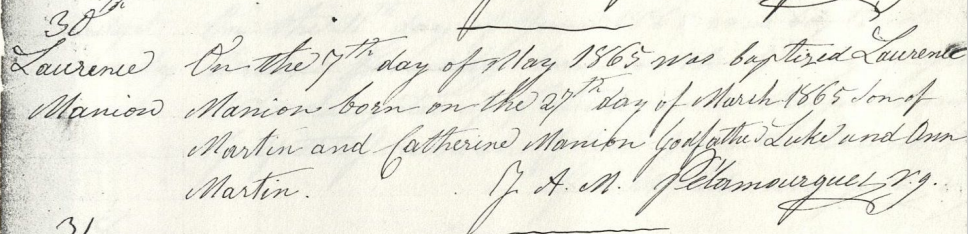 30th
Laurence
Manion
On the 7th day of May 1865 was baptized Laurence
Manion born on the 27th day of March 1865 Son of
Martin and Catherine Manion Godfather Luke and Ann
Martin. J. A. M. Pelamourgues V.g.
31